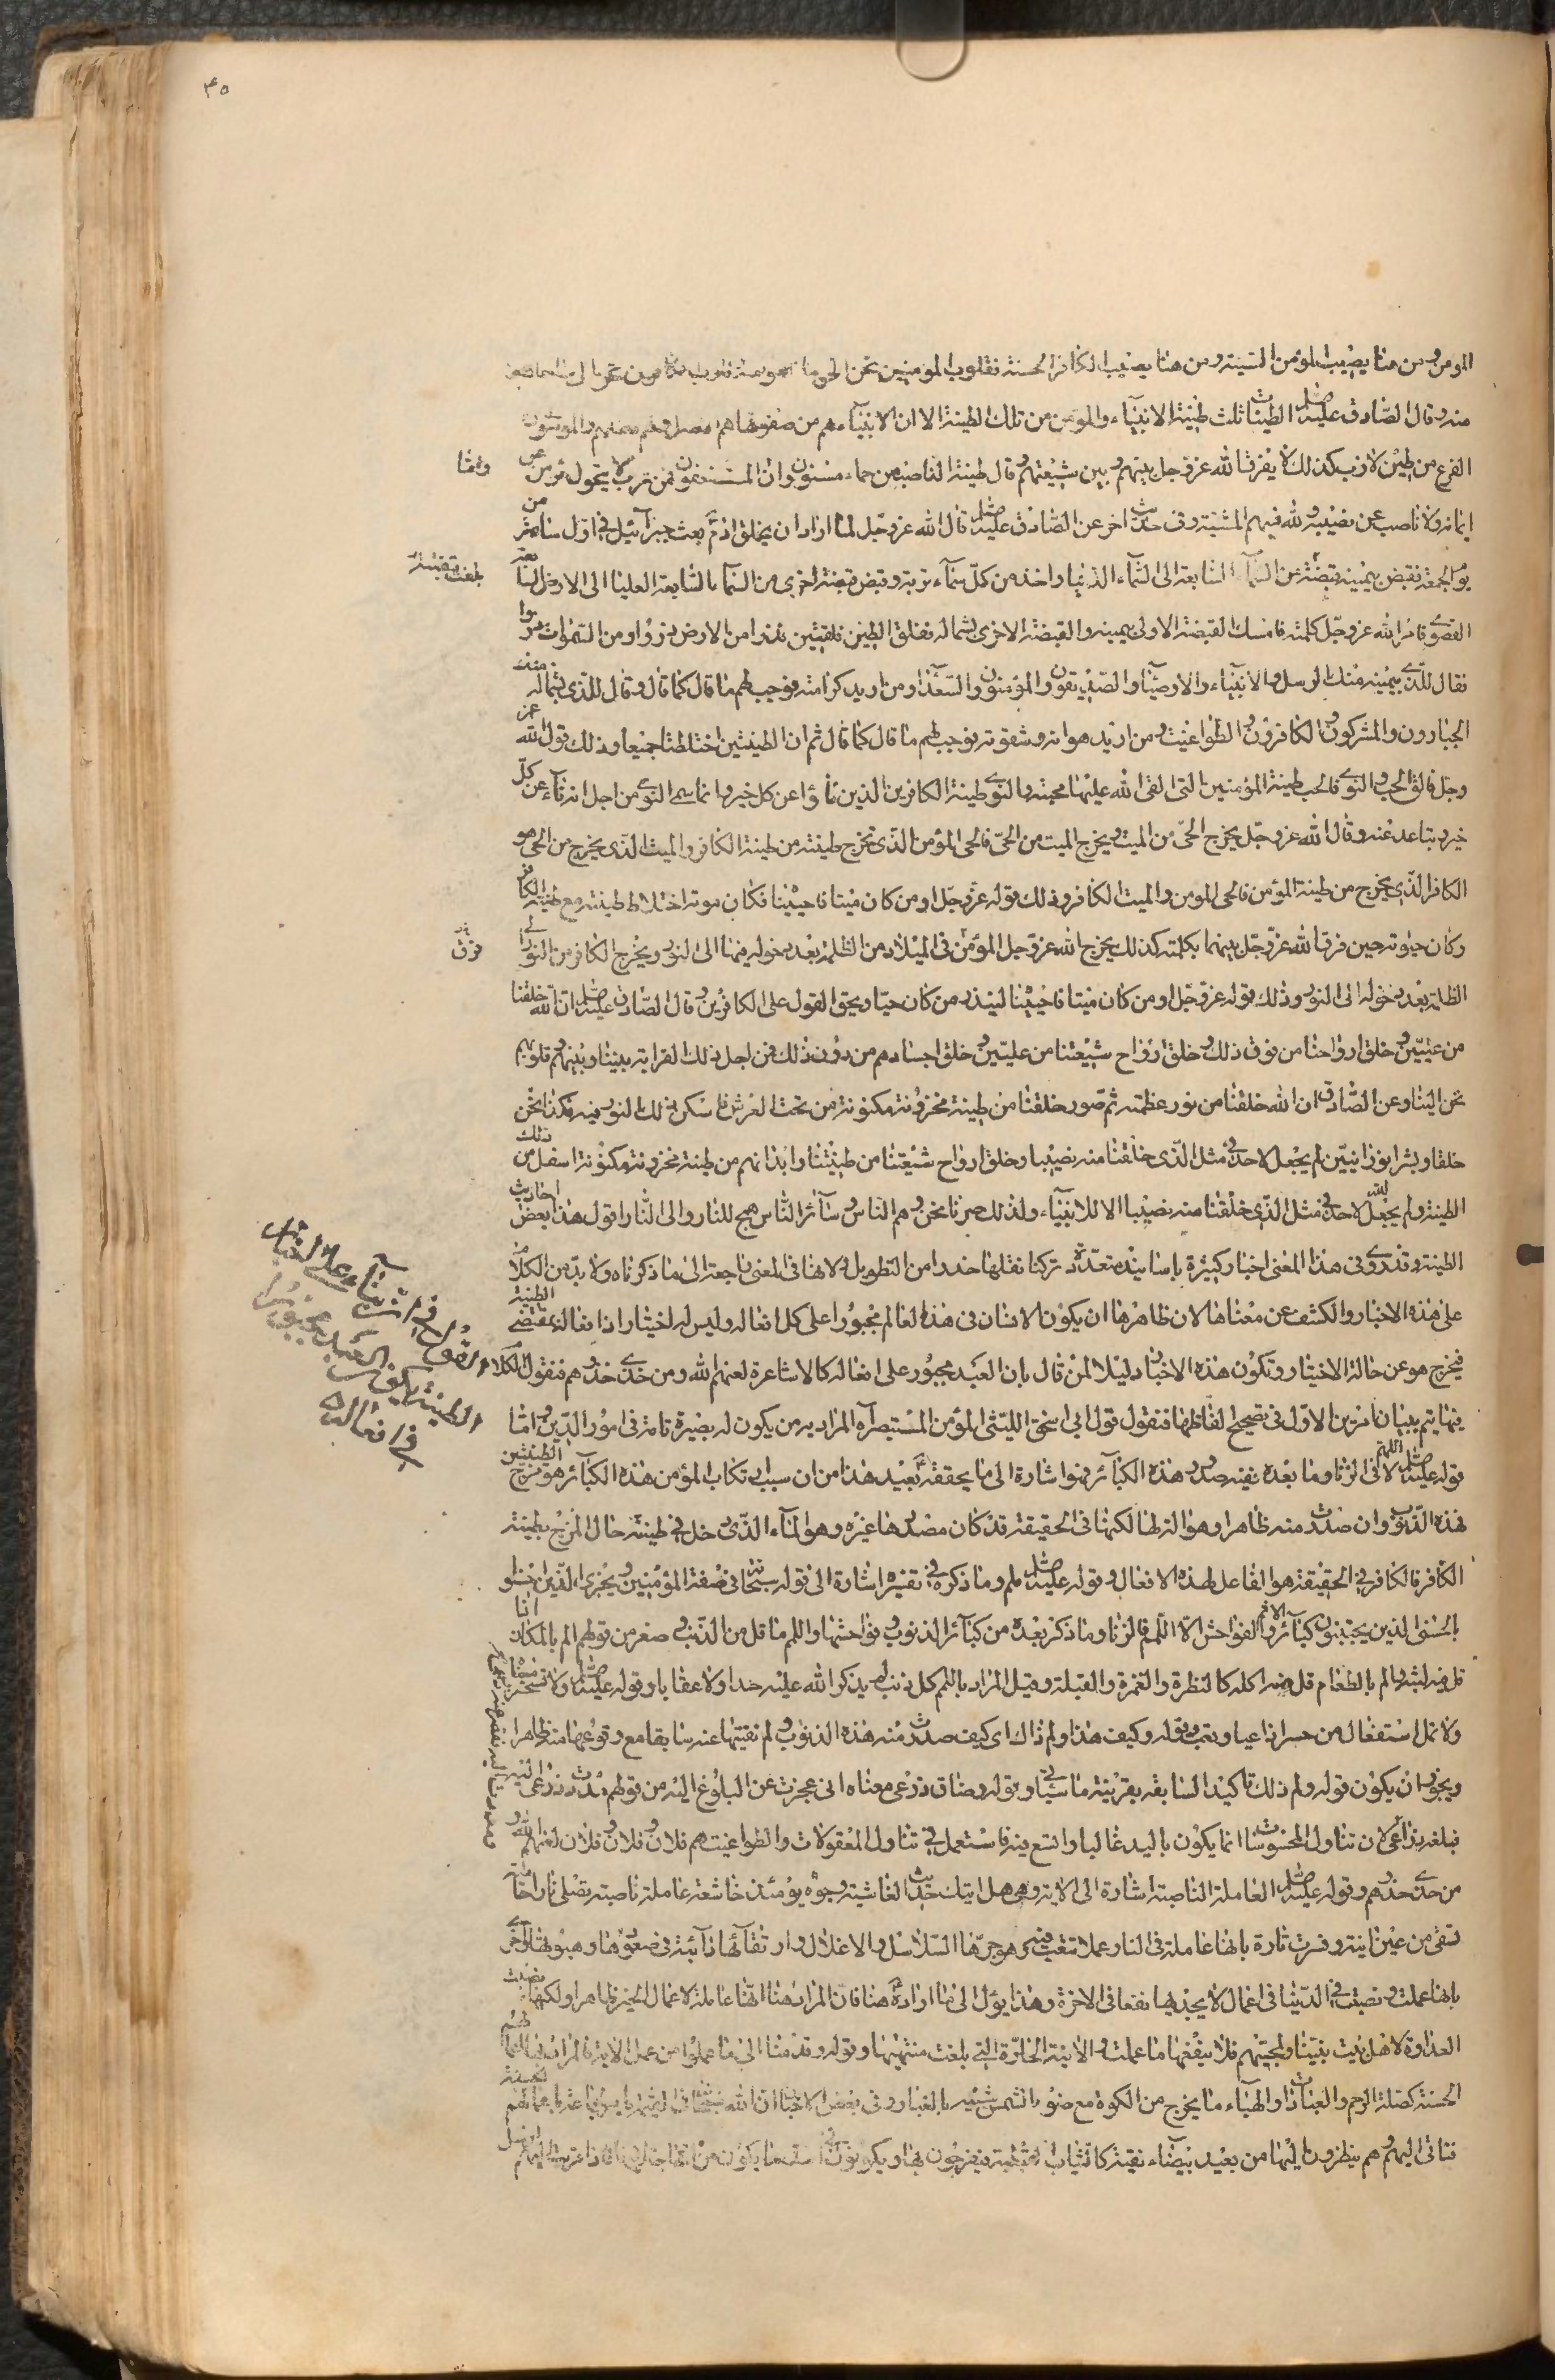 ٤٥
المومن ومن هنا يصيب المؤمن السيئة ومن هنا يصيب الكافر الحسنة فقلوب المؤمنين تحن الى ما خلقوا منه وقلوب الكافرين تحن الى ما خلقوا
منه وقال الصّادق عليه السلام الطينات ثلث طينة الانبياء والمؤمن من تلك الطينة الا ان الانبياء هم من صفوتها هم الاصل ولهم فضلهم والمؤمنون
الفرع من طين لازب كذلك لا يفرق الله عز وجل بينهم وبين شيعتهم وقال طينة الناصب من حماء مسنون وان المستضعفون فمن تراب لا يتحول مؤمن عن
ايمانه ولا ناصب عن نصيبه ولله فيهم المشيّة وفي حديث اخر عن الصّادق عليه السلام قال الله عز وجل لما اراد ان يخلق ادم بعث جبرائيل في اول ساعة من
يوم الجمعة فقبض بيمينه قبضة من السماء السابعة الى السماء الدنيا واخذ من كلّ سماء تربة وقبض قبضة اخرى من السماء السابعة العليا الى الارض السابعة
القصوى فامر الله عز وجل كلمته فامسك القبضة الاولى بيمينه والقبضة الاخرى بشماله ففلق الطين فلقتين فذرا من الارض ذروا ومن السموات ذروا
فقال للّذي بيمينه منك الرسل والانبياء والاوصياء والصديقون والمؤمنون والسعداء ومن اريد كرامته فوجب لهم ما قال كما قال وقال للّذي بشماله منك
الجبارون والمشركون والكافرون والطواغيت ومن اريد هوانه وشقوته فوجب لهم ما قال كما قال ثم ان الطينتين اختلطتا جميعا وذلك قول الله عز
وجل فالق الحب والنوى فالحب طينة المؤمنين التى القى الله عليها محبته والنوى طينة الكافرين الذين ناؤا عن كل خير وانما سمى النوى من اجل انه ناء عن كلّ
خير وتباعد عنه وقال الله عز وجل يخرج الحيّ من الميت ويخرج الميت من الحيّ فالحى المؤمن الّذى تخرج طينته من طينة الكافر والميت الّذى يخرج من الحى هو
الكافر الّذي يخرج من طينة المؤمن فالحى المومن والميت الكافر وذلك قوله عز وجل اومن كان ميتا فاحييناه فكان موته اختلاط طينته مع طينة الكافر
وكان حيوته حين فرق الله عزّ وجلّ بينهما بكلمته كذلك يخرج الله عز وجل المؤمن في الميلاد من الظلمة بعد دخوله فيها الى النور ويخرج الكافر من النور الى
الظلمة بعد دخوله الى النور وذلك قوله عز وجل اومن كان ميتا فاحييناه لينذر من كان حيّا ويحق القول على الكافرين وقال الصّادق عليه السلام ان الله خلقنا
من عليّين وخلق ارواحنا من فوق ذلك وخلق ارواح شيعتنا من علييّن وخلق اجسادهم من دون ذلك فمن اجل ذلك القرابة بيننا وبينهم وقلوبهم
تحن الينا وعن الصّادق ان الله خلقنا من نور عظمته ثم صّور خلقنا من طينة مخزونة مكنونة من تحت العرش فاسكن ذلك النور فيه فكنا نحن
خلقا وبشرا نورانيين لم يجعل لاحد في مثل الّذي خلقنا منه نصيبا وخلق ارواح شيعتنا من طينتنا وابدانهم من طينة مخزونة مكنونة اسفل من ذلك
الطينة ولم يجعل الله لاحد في مثل الذّي خلقنا منه نصيبا الا للانبياء ولذلك صرنا نحن وهم الناس وسائر الناس همج للنار والى النار اقول هذا بعض احاديث
الطينة وقد روى فى هذا المعنى اخبار كثيرة باسانيد متعدّدة تركنا نقلها حذرا من التطويل ولانها فى المعنى راجعة الى ما ذكرناه ولا بدّ من الكلام
على هذه الاخبار والكشف عن معناها لان ظاهرها ان يكون الانسان فى هذا العالم مجبورا على كل افعاله وليس له اختيار اذا فعاله بمقتضى الطينة
فيخرج هو عن حالة الاختيار وتكون هذه الاخبار دليلا لمن قال بان العبد مجبور على افعاله كالاشاعرة لعنهم الله ومن حذى حذوهم فنقول الكلام
فيها يتم ببيان امرين الاوّل فى تصحيح الفاظها فنقول قول ابي اسحق الليثى المؤمن المستبصر المراد به من يكون له بصيرة تامة فى امور الدّين واما
قوله عليه السلام اللهم لا فى الزنا وما بعده نفيه صدور هذه الكبائر فهو اشارة الى ما يحققه بعيد هذا من ان سبب ارتكاب المؤمن هذه الكبائر هو مزج الطينتين
فهذه الذنوب وان صدرت منه ظاهرا وهو الة لها لكنها فى الحقيقة قد كان مصدرها غيره وهو الماء الذّى دخل في طينته حال المزج بطينة
الكافر فالكافر في الحقيقة هو الفاعل لهذه الافعال وقوله عليه السلام يلم وما ذكره في تفسيره اشارة الى قوله سبحانه فى صفة المؤمنين ويجزى الّذين احسنوا
بالحسنى الذين يجتنبون كبائر الاثم والفواحش الاّ اللّمم فالزنا وما ذكر بعده من كبائر الذنوب وفواحشها واللمم ما قل من الذّنب وصغر من قولهم الم بالمكان اذا
قل فيه لبثه والم بالطعام قل منه اكله كالنظرة والغمزة والقبلة وقيل المراد باللمم كل ذنب لم يذكر الله عليه حدا ولا عقابا وقوله عليه السلام ولا تستحسر
ولا تمل استفعال من حسر اذا عيا وتعب وقوله وكيف هذا ولم ذاك اى كيف صدرت منه هذه الذنوب ولم نفيتها عنه سابقا مع وقوعها منه ظاهرا
ويجوز ان يكون قوله ولم ذلك تاكيدا لسابقه بقرينة ما سياتي وقوله وضاق ذرعى معناه انى عجزت عن البلوغ اليه من قولهم مددت ذرعى اليه
فبلغه ذراعى لان تناول المحسوسات انما يكون باليد غالبا واتسع فيه فاستعمل في تناول المعقولات والطواغيت هم فلان وفلان وفلان لعنهم الله و
من حذى حذوهم وقوله عليه السلام العاملة الناصبة اشارة الى الاية وهى هل اتيك حديث الغاشية وجوه يومئذ خاشعة عاملة ناصبة تصلى نارا حامية
تسقى من عين انية وفسرت تارة بانها عاملة فى النار عملا تتعب فيه وهو جرها السّلاسل والاغلال وارتقائها دائبة فى صعودها وهبوطها واخرى
بانها عملت ونصبت في الدّنيا فى اعمال لا يجديها نفعا فى الاخرة وهذا يؤل الى ما اراده هنا فان المراد هنا انها عاملة لاعمال الخير ظاهرا ولكنها نصبت
العداوة لاهل بيت نبيّنا ولمحبّيهم فلا ينفعها ما عملت والانية الحارّة التي بلغت منتهيها وقوله وقدمنا الى ما عملوا من عمل الاية فالمراد فى اعمالهم
الحسنة كصلة الرحم والعبادات والهباء ما يخرج من الكوة مع ضوء الشمس شبيه بالغبار وفى بعض الاخبار ان الله سبحانه
فتاتى اليهم وهم ينظرون اليها من بعيد بيضاء نقية كالثياب القبطية فيفرحون بها ويكونون
وانما
بلغت قبضته
فرق
الاقوال في انّ بناء على اخبار
الطينة يكون العبد مجبورا
في افعاله